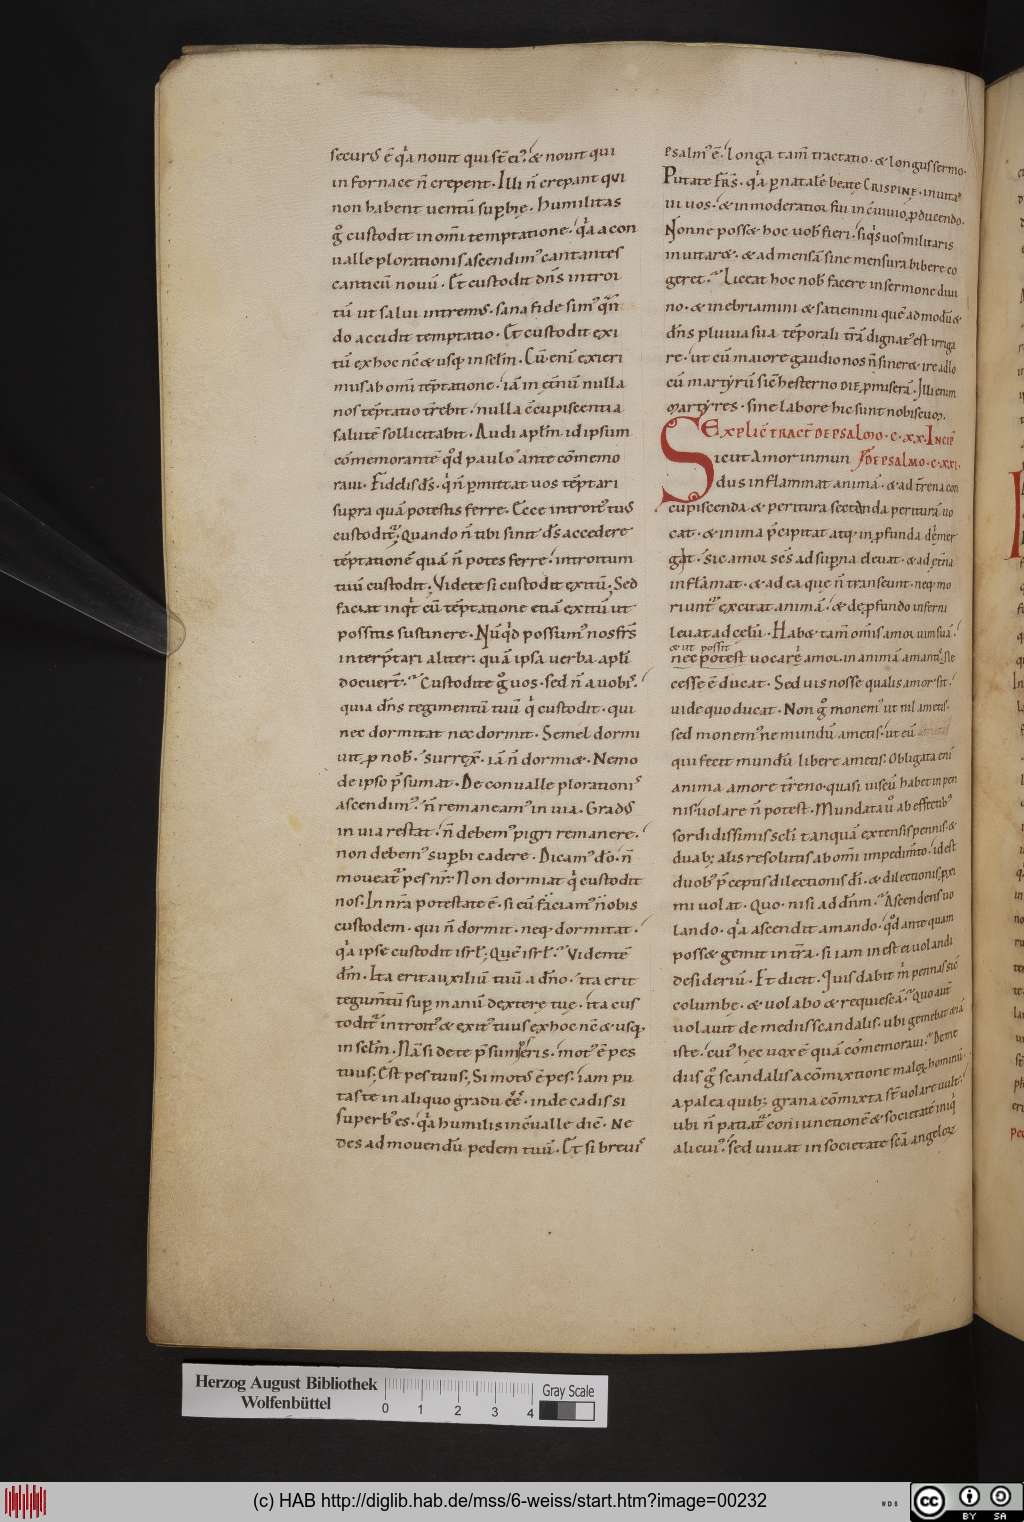 securꝰ ē q̇a nouit qui st̄ ei᷒. & nouit qui
in fornace n̄ crepent. Illi n̄ crepant qui
non habent uentū supbię. humilitas
g̊ custodit in om̄i temptatione. q̇a a con
ualle plorationis ascendim᷒ cantantes
canticū nouū. Et custodit dn̄s introi
tū ut salui intremꝰ. sana fide sim᷒ qn̄
do accidit temptatio. Et custodit exi
tū ex hoc nc̄ & usq; in sclm̄. Cū eni exieri
mus ab omi tēptatione. iā in et̄nū nulla
nos tēptatio t̄rebit. nulla c̄cupiscentia
salutē sollicitabit. Audi aplm̄ id ipsum
cōmemorantē. qd̄ paulo ante cōmemo
raui. Fidelis ds̄. q̇ n̄ pmittat uos tēptari
supra quā potestis ferre. Ecce introit᷒ tuꝰ
custodit᷑. Quando n̄ tibi sinit ds̄ accedere
tēptationē quā n̄ potes ferre. introitum
tuū custodit; Videte si custodit exitū. Sed
faciat inqt cū tēptatione etiā exitū ut
possitis sustinere. Nūqd possum᷒ nos frs̄
interptari aliter. quā ipsa uerba apli
docuert̄. Custodite g̊ uos. sed n̄ a uobis.
quia dn̄s tegimentū tuū q̇ custodit. qui
nec dormitat nec dormit. Semel dormi
uit p nob̄. surrex̄. iā n̄ dormi&. Nemo
de ipso p̄sumat. De conualle plorationis
ascendim᷒. n̄ remaneam᷒ in uia. Gradꝰ
in uia restat. n̄ debem᷒ pigri remanere.
non debem᷒ supbi cadere. Dicam᷒ dō. n̄
moueat᷑ pes nr̄. Non dormiat q̇ custodit
nos. In nr̄a potestate ē. si cū faciam᷒ nobis
custodem. qui n̄ dormit. neq; dormitat.
q̇a ipse custodit isrl̄; Quē isrl̄. Videntē
dm̄. Ita erit auxiliū tuū a dn̄o. ita erit
tegumtū sup manū dexterę tuę. ita cus
todit᷑ introit᷒ & exit᷒ tuus ex hoc nc̄ & usq;
in sclm̄. Nā si de te p̄sumseris. mot᷒ ē pes
tuus; Est pes tuus; Si motꝰ ē pes. iam pu
tas te in aliquo gradu eē. inde cadis si
superb᷒ es. q̇a humilis in c̄ualle dic̄. Ne
des ad mouendū pedem tuū. Et si breuis
psalm᷒ ē. longa tam̄ tractatio. & longus sermo.
Putate frs̄. q̇a p natale beatę CRISPINE. inuita
ui uos. & in moderatior fui in c̄uiuio pducendo.
Nonne poss& hoc uob̄ fieri. si q̇s uos militaris
inuitar&. & ad mensā sine mensura bibere co
geret. Liceat hoc nob̄ facere in sermone diui
no. & inebriamini & satiemini. quē admodū &
dn̄s pluuia sua tēporali trā dignat᷒ est irriga
re. ut cū maiore gaudio nos n̄ siner& ire ad lo
cū martyrū sic̄ hesterno DIE pmiserā. Illi enim
martyres. sine labore hic sunt nobiscum.
Explic̄ tract̄ de psalmo. c.xx. Incip̄
Sicut Amor inmun de psalmo.c.xxi.
dus inflammat animā. & ad t̄rena con
cupiscenda & peritura sectanda periturā uo
cat. & in ima p̄cipitat atq; in pfunda demer
git. sic amor scs̄ ad supna eleuat. & ad et̄na
inflāmat. & ad ea quę n̄ transeunt. neq; mo
riunt᷑ excitat animā. & de pfundo inferni
leuat ad celū. Hab& tam̄ om̄is amor uim suā.
& ut possit
nec potest uocare amor in animā amantis. ne
cesse ē ducat. Sed uis nosse qualis amor sit.
uide quo ducat. Non g̊ monem᷒ ut nil ametis.
sed monem᷒ ne mundū ametis. ut eū
qui fecit mundū libere ametis. Obligata eni
anima amore t̄reno. quasi uiscū habet in pen
nis. uolare n̄ potest. Mundata u ab affectib᷒
sordidissimis scli. tanquā extensis pennis. &
duab; alis resolutis ab om̄i impedimto. id est
duob᷒ p̄ceptis dilectionis di. & dilectionis pxi
mi uolat. Quo. nisi ad dn̄m. Ascendens uo
lando. q̇a ascendit amando. qd̄ ante quam
poss& gemit in tra. si iam in est ei uolandi
desideriū. Et dicit. Quis dabit m̄ pennas sic̄
columbę. & uolabo & requiescā. Quo aut
uolauit de mediis scandalis. ubi gemebat &iā
iste. cui᷒ hęc uox ē quā cōmemoraui. De me
diis g̊ scandalis a cōmixtione maloꝝ hominū.
a palea quib; grana cōmixta st̄ uolare uult.
ubi n̄ patiat᷑ coniunctionē & societatē iniq̇
alicui᷒. sed uiuat in societate scā angeloꝝ
Herzog August Bibliothek
Wolfenbüttel
0 1 2 3 4
Gray Scale
(c) HAB http://diglib.hab.de/mss/6-weiss/start.htm?image=00232
WDB
cc
BY SA